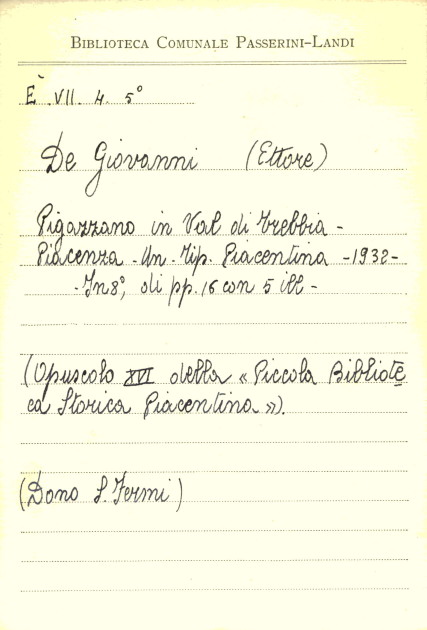 BIBLIOTECA COMUNALE PASSERINI-LANDI
È .VII. 4. 5°
De Giovanni (Ettore)
Pigazzano in Val di Trebbia -
Piacenza - Un. Tip. Piacentina - 1932 -
- In 8°, di pp. 16 con 5 ill -
(Opuscolo XVI della « Piccola Bibliote
ca Storica Piacentina »).
(Dono S. Fermi)